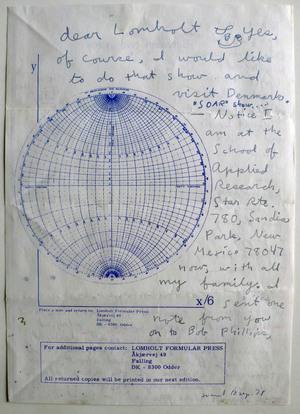 dear Lomholt Yes,
of course, I would like
to do that show and
visit Denmark.
"SOAR" show...
y
— Notice I
am at the
School of
Applied
Research,
Star Rte.
780, Sandia
Park, New
Mexico 78047
now, with all
my family. I
x/6
sent one
Place a note and return to: Lomholt Formular Press
Åkjærvej 49
Falling
DK - 8300 Odder
note from you
on to Bob Phillips,
For additional pages contact: LOMHOLT FORMULAR PRESS
Åkjærvej 49
Falling
DK - 8300 Odder
All returned copies will be printed in our next edition.